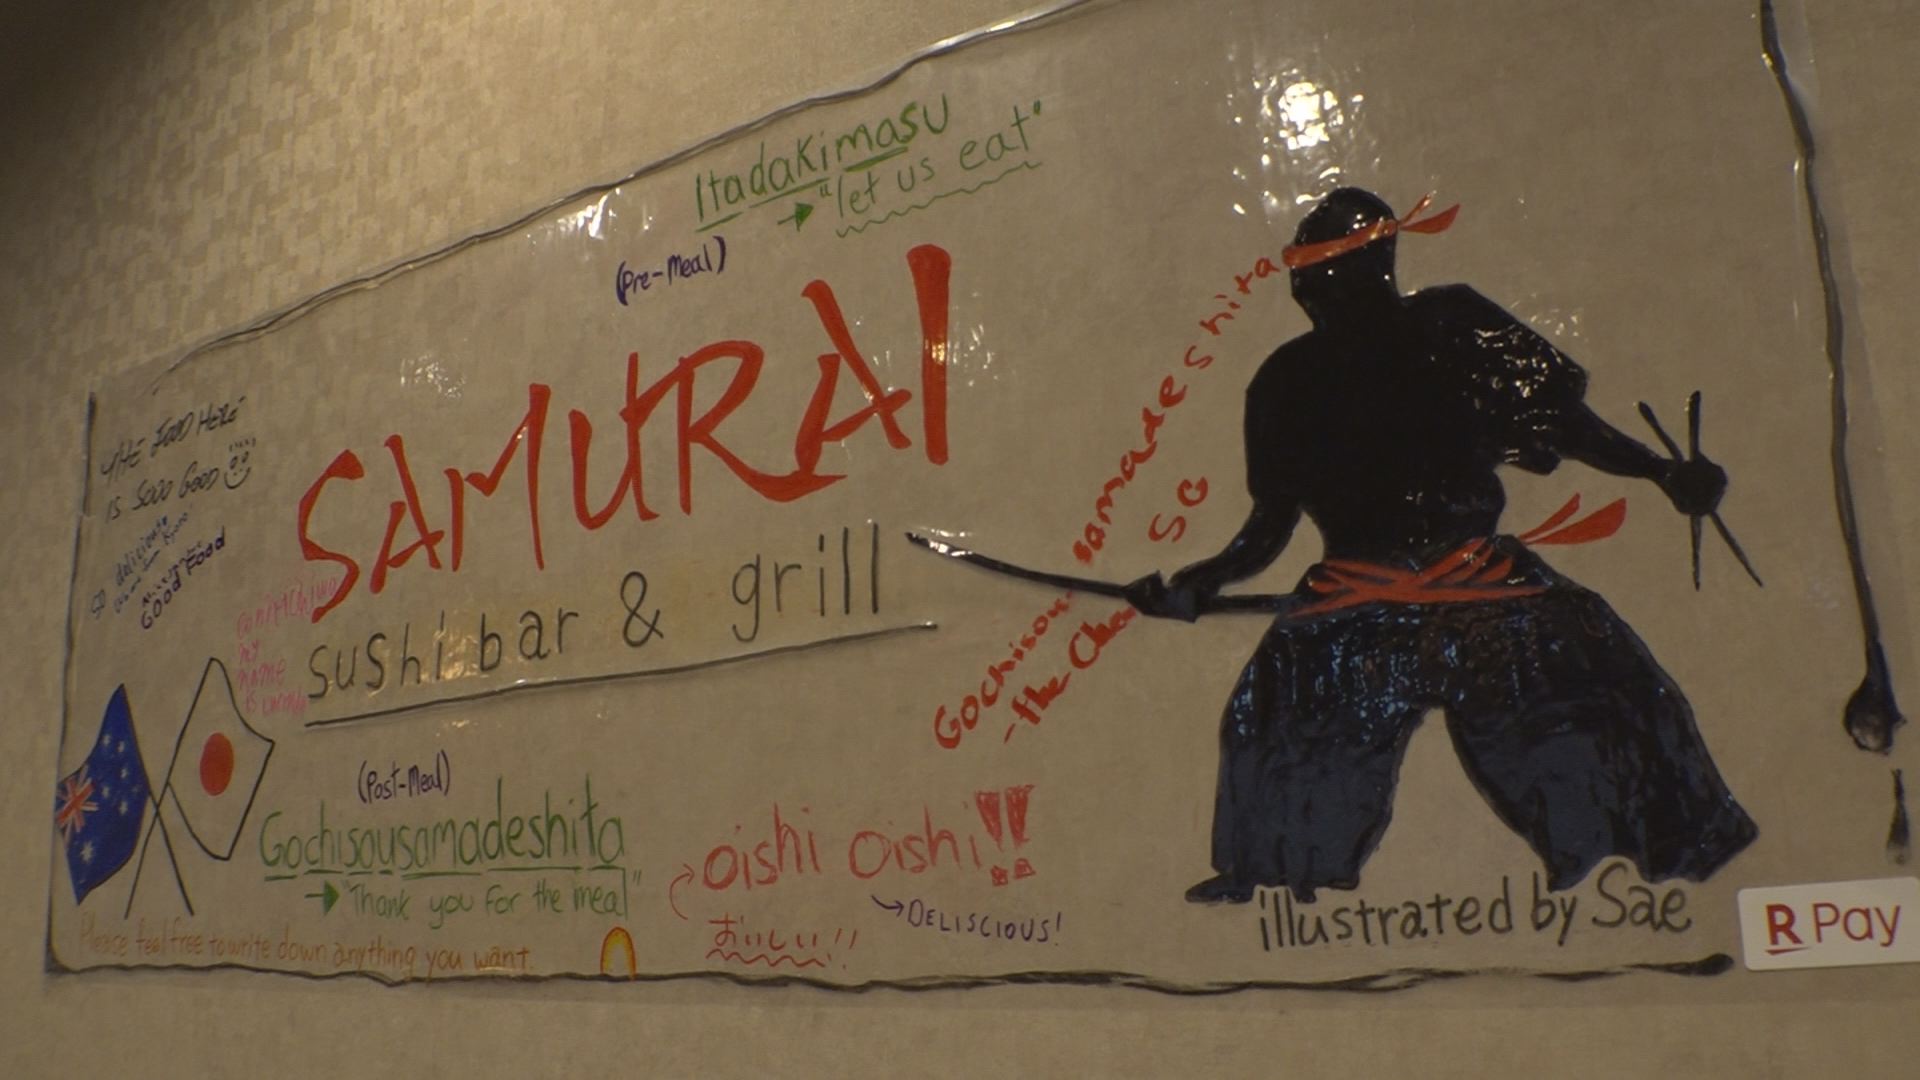 Itadakimasu
"let us eat"
(Pre-Meal)
SAMURAI
sushi bar & grill
THE FOOD HERE
IS SOOO GOOD
so delicious
GOOD FOOD
my
name
is
Gochisou-samadeshita
-the Cha
SG
(Post-Meal)
Gochisousamadeshita
"Thank you for the meal"
oishi oishi!!
おいしい!!
DELISCIOUS!
Please feel free to write down anything you want.
illustrated by Sae
R Pay